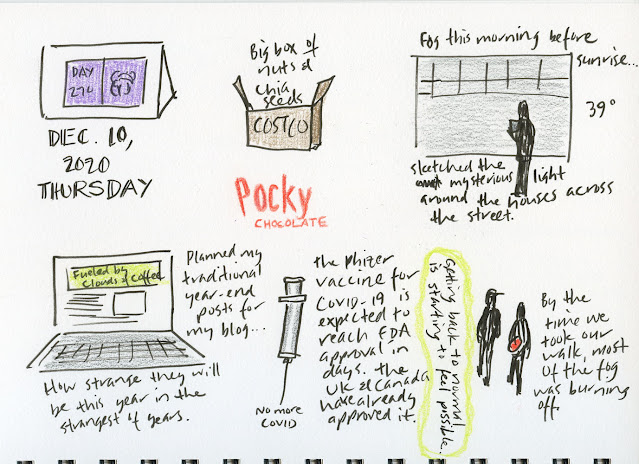 DAY
270
DEC. 10,
2020
THURSDAY
Big box of
nuts &
chia
seeds
COSTCO
Pocky
CHOCOLATE
Fog this morning before
sunrise...
39°
sketched the
mysterious light
around the houses across
the street.
Fueled by
Clouds of Coffee
Planned my
traditional
year-end
posts for
my blog...
How strange they will
be this year in the
strangest of years.
No more
COVID
the Phizer
vaccine for
Covid-19 is
expected to
reach FDA
approval in
days. the
UK & Canada
have already
approved it.
Getting back to normal
is starting to feel possible.
By the
time we
took our
walk, most
of the fog
was burning
off.